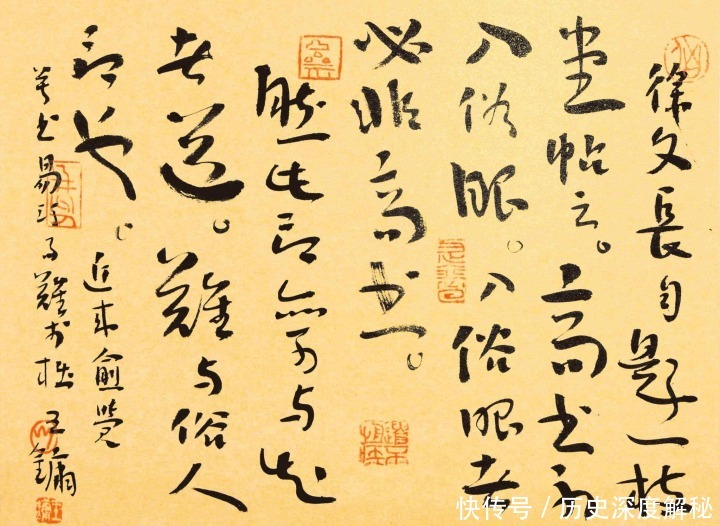 徐文長自題一枝
堂帖云。高书不
入俗眼。入俗眼者
必非高书。
然此言亦可与知
者道。難与俗人
言也。近来愈覺
草书易難於拙 王鏞
快传号 / 历史深度解秘